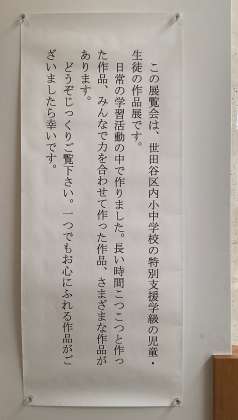 この展覧会は、世田谷区内小中学校の特別支援学級の児童・
生徒の作品展です。
日常の学習活動の中で作りました。長い時間こつこつと作っ
た作品、みんなで力を合わせて作った作品、さまざまな作品が
あります。
どうぞじっくりご覧下さい。一つでもお心にふれる作品がご
ざいましたら幸いです。